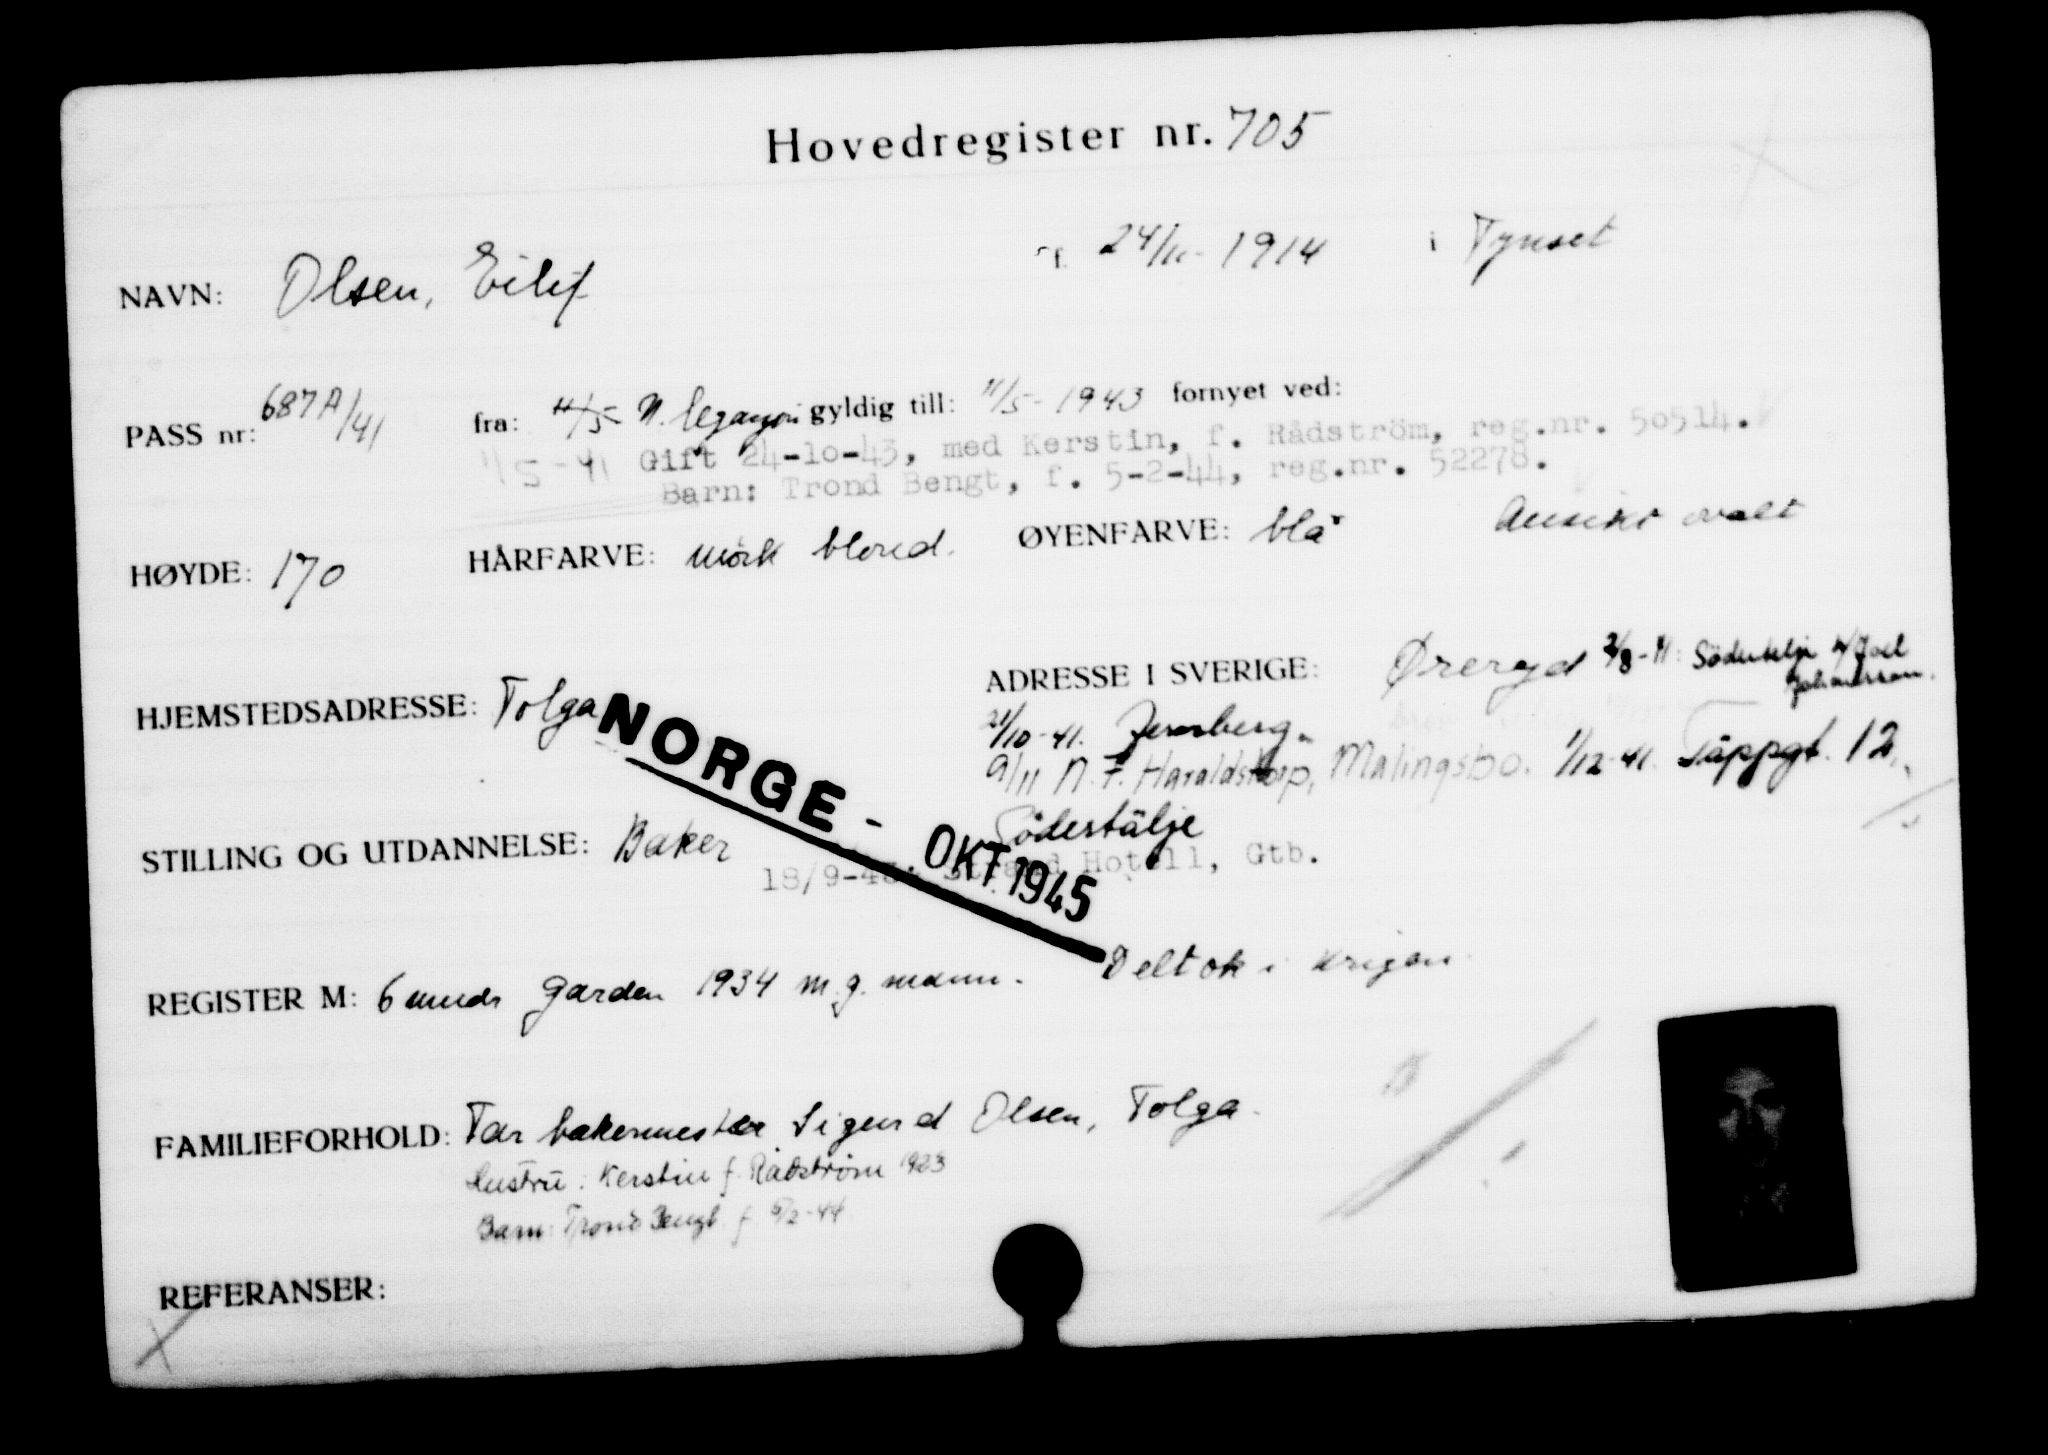 Hovedregister nr. 705
NAVN: Olsen, Eilif f. 24/11-1914 i Tynset
PASS nr: 687A/41 fra: 11/5 N. legasjon gyldig till: 11/5-1943 fornyet ved:
11/5-41 Gift 24-10-43, med Kerstin, f. Rådström, reg.nr. 50514.
Barn: Trond Bengt, f. 5-2-44, reg.nr. 52278.
HØYDE: 170 HÅRFARVE: mörk blond. ØYENFARVE: blå Ansikt ovalt
HJEMSTEDSADRESSE: Tolga ADRESSE I SVERIGE: Øreryd 2/8-41: Södertelje
Johansson.
21/10-41.
9/11 N.F. Haraldstorp, Malingsbo. 1/12-41. Täppgt. 12,
Södertälje
NORGE - OKT 1945
STILLING OG UTDANNELSE: Baker
18/9-43. Strand Hotell, Gtb.
REGISTER M: 6 mndr Garden 1934 m.g. mann. Deltok i krigen.
FAMILIEFORHOLD: Far bakermester Sigurd Olsen, Tolga.
Hustru: Kerstin f. Rådstrøm 1923
Barn: Trond Bengt f. 5/2-44
REFERANSER: